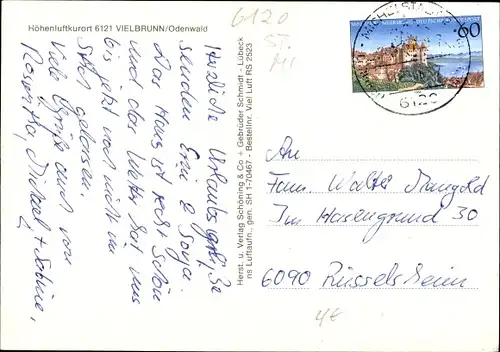 Höhenluftkurort 6121 VIELBRUNN/Odenwald
Herzliche Urlaubsgrüße
senden Erni & Sonja
Das Haus ist recht schön
und das Wetter hat uns
bis jetzt noch nicht im
Stich gelassen.
Viele Grüße auch von
Roswitha, Michael + Sabine,
Herst. u. Verlag Schöning & Co + Gebrüder Schmidt - Lübeck
ns Luftaufn., gen. SH 1-70467 - Bestellnr. Viel Luft RS 2523
6120
ST.
MI
60
6120
An
Fam. Walter Mangold
Im Hasengrund 30
6090 Rüsselsheim
4€